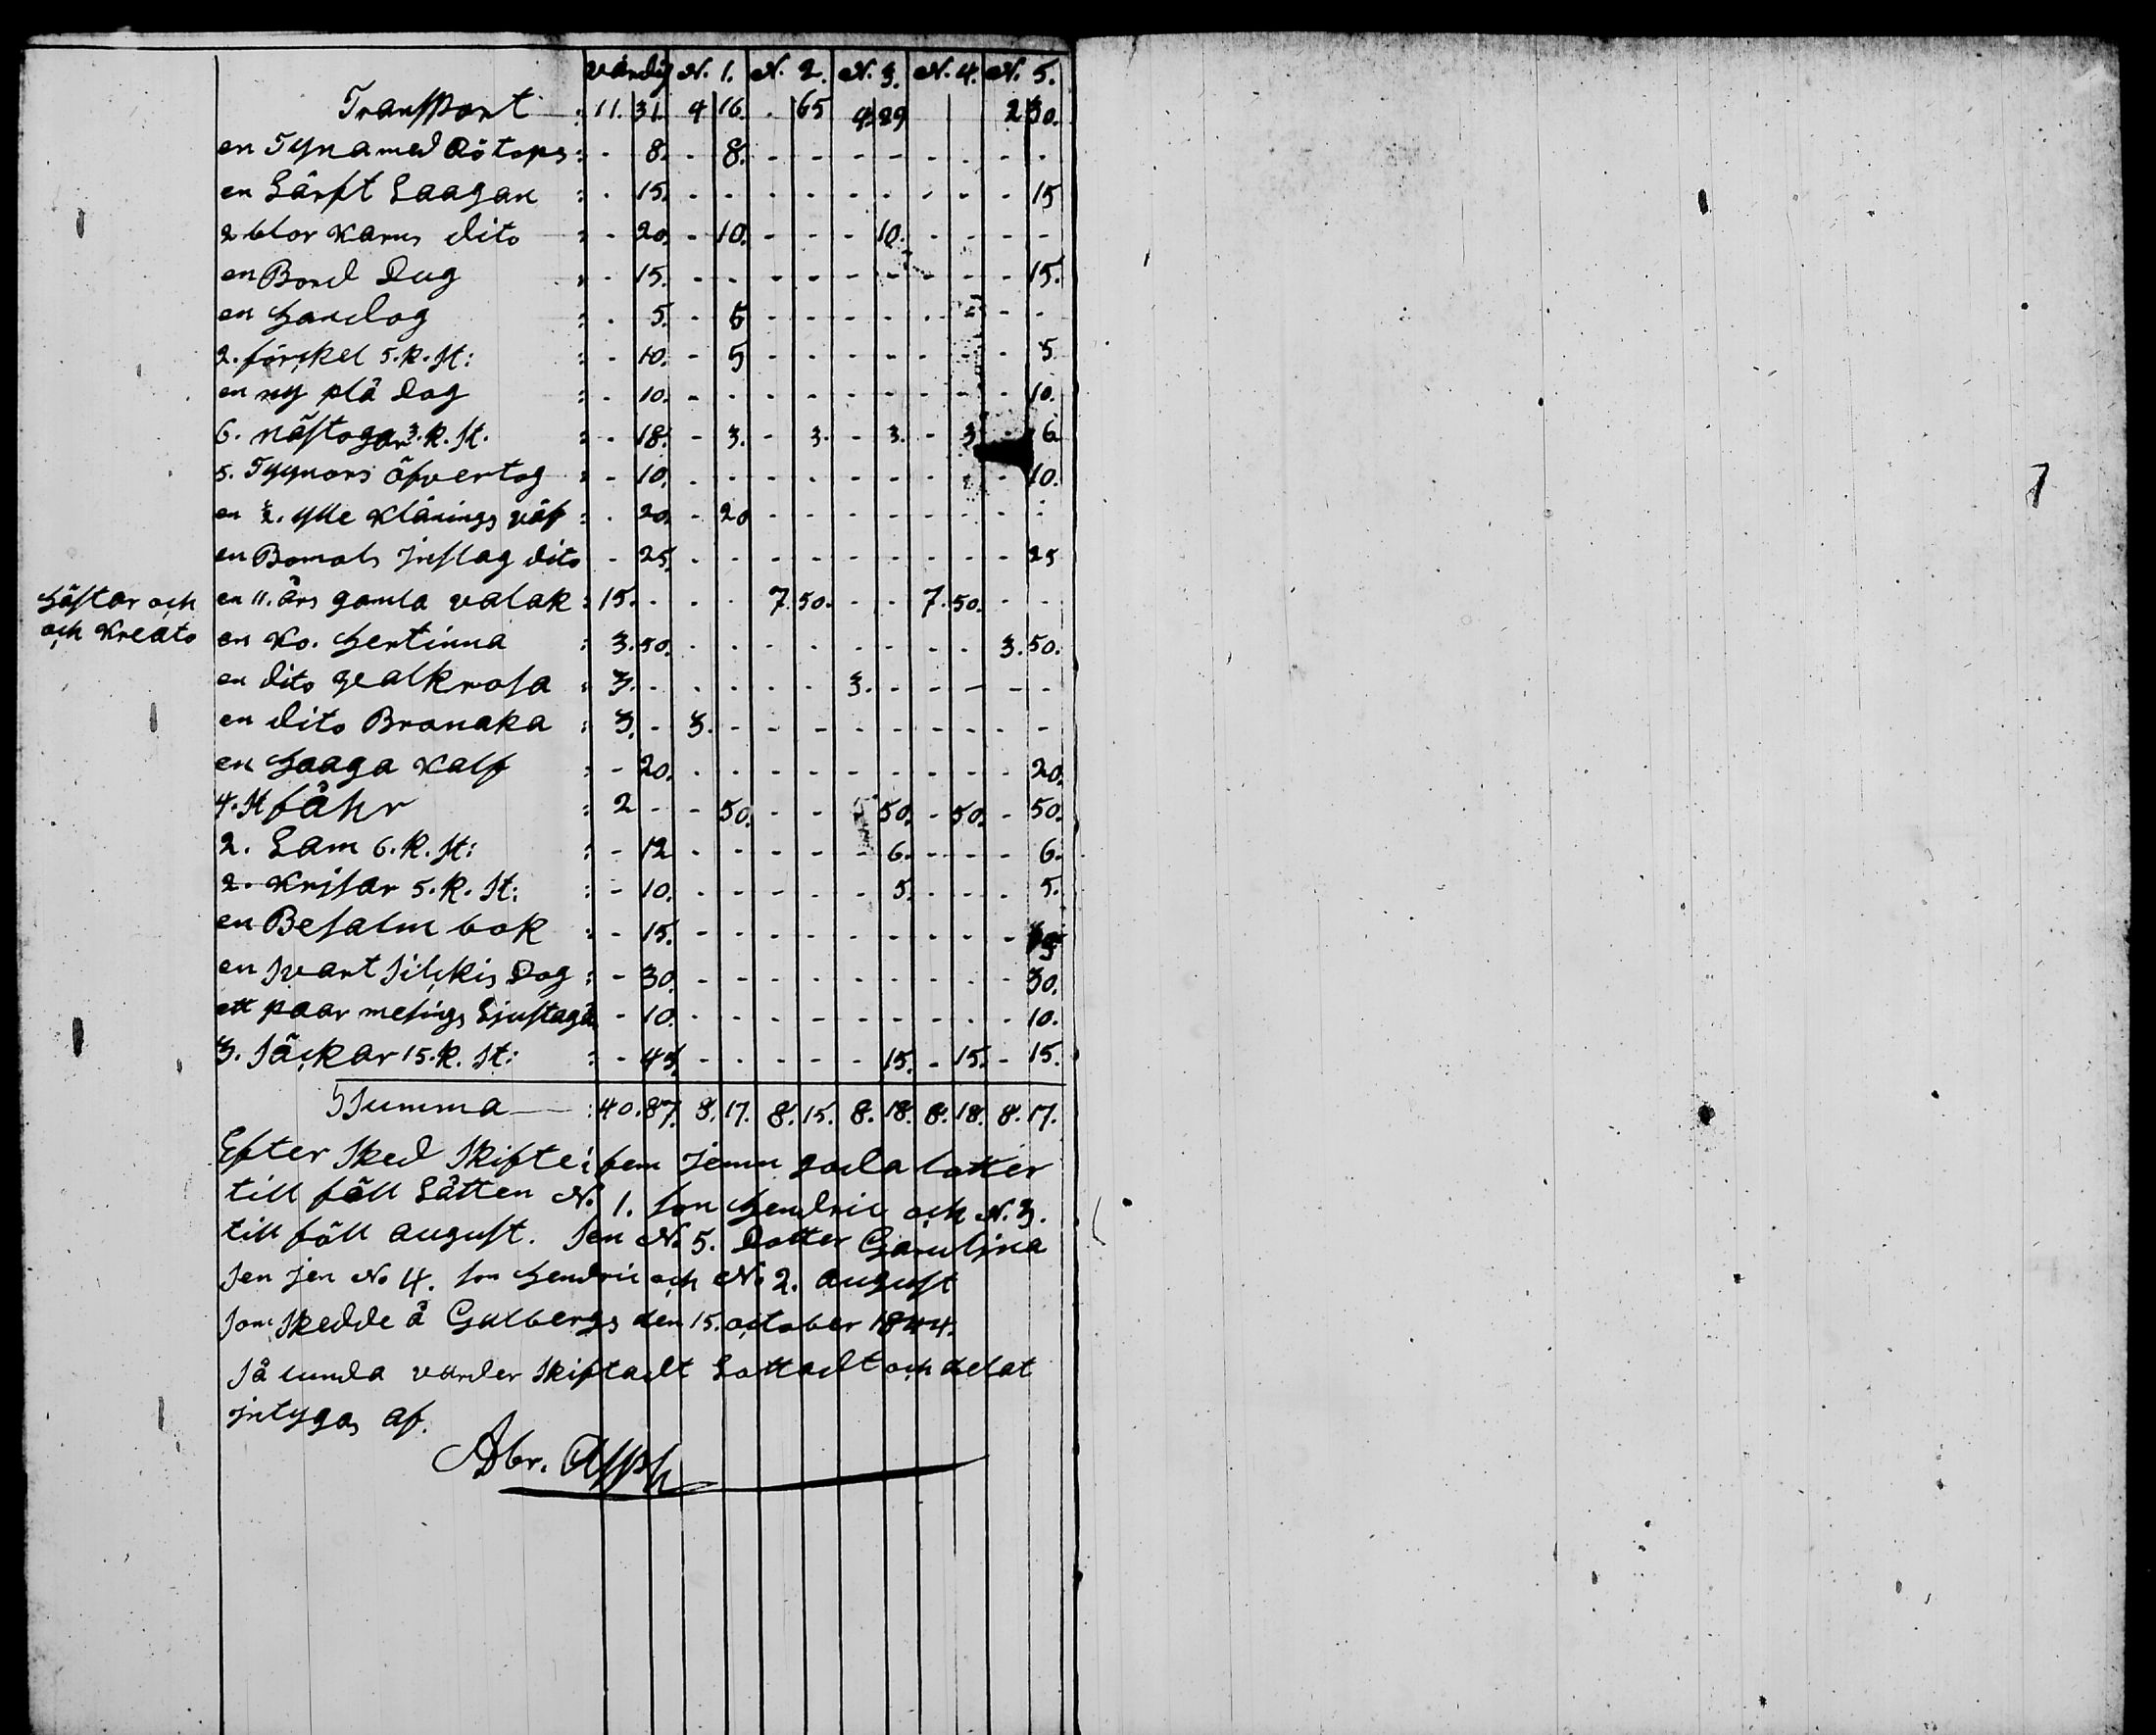 värdig N. 1. N. 2. N. 3. N. 4. N. 5.
Transport : 11. 31. 4 16. . 65 4. 29 2 30.
en Tyna med Rötops : - 8. - 8. - - - - - - - -
en Lärft Laagan : - 15. - - - - - - - - - 15
2 blor Karns dito : - 20. - 10. - - - 10. - - - -
en Bord Dug : - 15. - - - - - - - - - 15.
en Handog : - 5. - 5 - - - - - - - -
2. förckel 5. k. st: : - 10. - 5 - - - - - - - 5
en ny plå Dog : - 10. - - - - - - - - - 10.
6. nästogar 3. k. st. : - 18. - 3. - 3. - 3. - 3 - 6
5. Tyynors öfvertog : - 10. - - - - - - - - - 10.
en ½. ylle Klänings väf : - 20. - 20 - - - - - - - -
en Bomols jnslag dito - 25. - - - - - - - - - 25
Hästar och en 11. års gamla valak : 15. - - - 7. 50. - - 7. 50. - -
och Kreato en Ko. Hertinna : 3. 50. - - - - - - - - 3. 50.
en dito gealkrosa : 3. - - - - - 3. - - - - -
en dito Bronaka : 3. - 3. - - - - - - - - -
en Haaga Kalf : - 20. - - - - - - - - - 20.
4. st fåhr : 2 - - 50. - - - 50. - 50. - 50.
2. Lam 6. k. st: : - 12 - - - - - 6. - - - 6.
2. Krisar 5. k. st: : - 10. - - - - - 5. - - - 5.
en Besalm bok : - 15. - - - - - - - - - 15
en svart silckis Dog : - 30. - - - - - - - - - 30.
ett paar mesings Ljustaga - 10. - - - - - - - - - 10.
3. säckar 15. k. st: : - 45. - - - - - 15. - 15. - 15.
Summa : 40. 87. 8. 17. 8. 15. 8. 18. 8. 18. 8. 17.
Efter sked skifte i fem jemn goda lotter
till föll Låtten N. 1. son Hendric och N. 3.
till föll august. sen No 5. Dotter Carulina
sen jen No 4. son Hendric och No 2. august
som skedde å Gulbergs den 15. october 1844.
så lunda värder skiftadt Lottadt och delat
jntygas af.
Abr. Assph